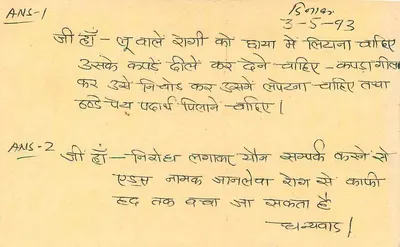 ANS-1
दिनांक
3-5-93
जी हाँ - लू वाले रोगी को छाया में लिटाना चाहिए
उसके कपड़े ढीले कर देने चाहिए - कपड़ा गीला
कर उसे निचोड़ कर उसमें लपेटना चाहिए तथा
ठण्डे पेय पदार्थ पिलाने चाहिए।
ANS-2
जी हाँ - निरोध लगाकर यौन सम्पर्क करने से
एड्स नामक जानलेवा रोग से काफी
हद तक बचा जा सकता है
धन्यवाद।